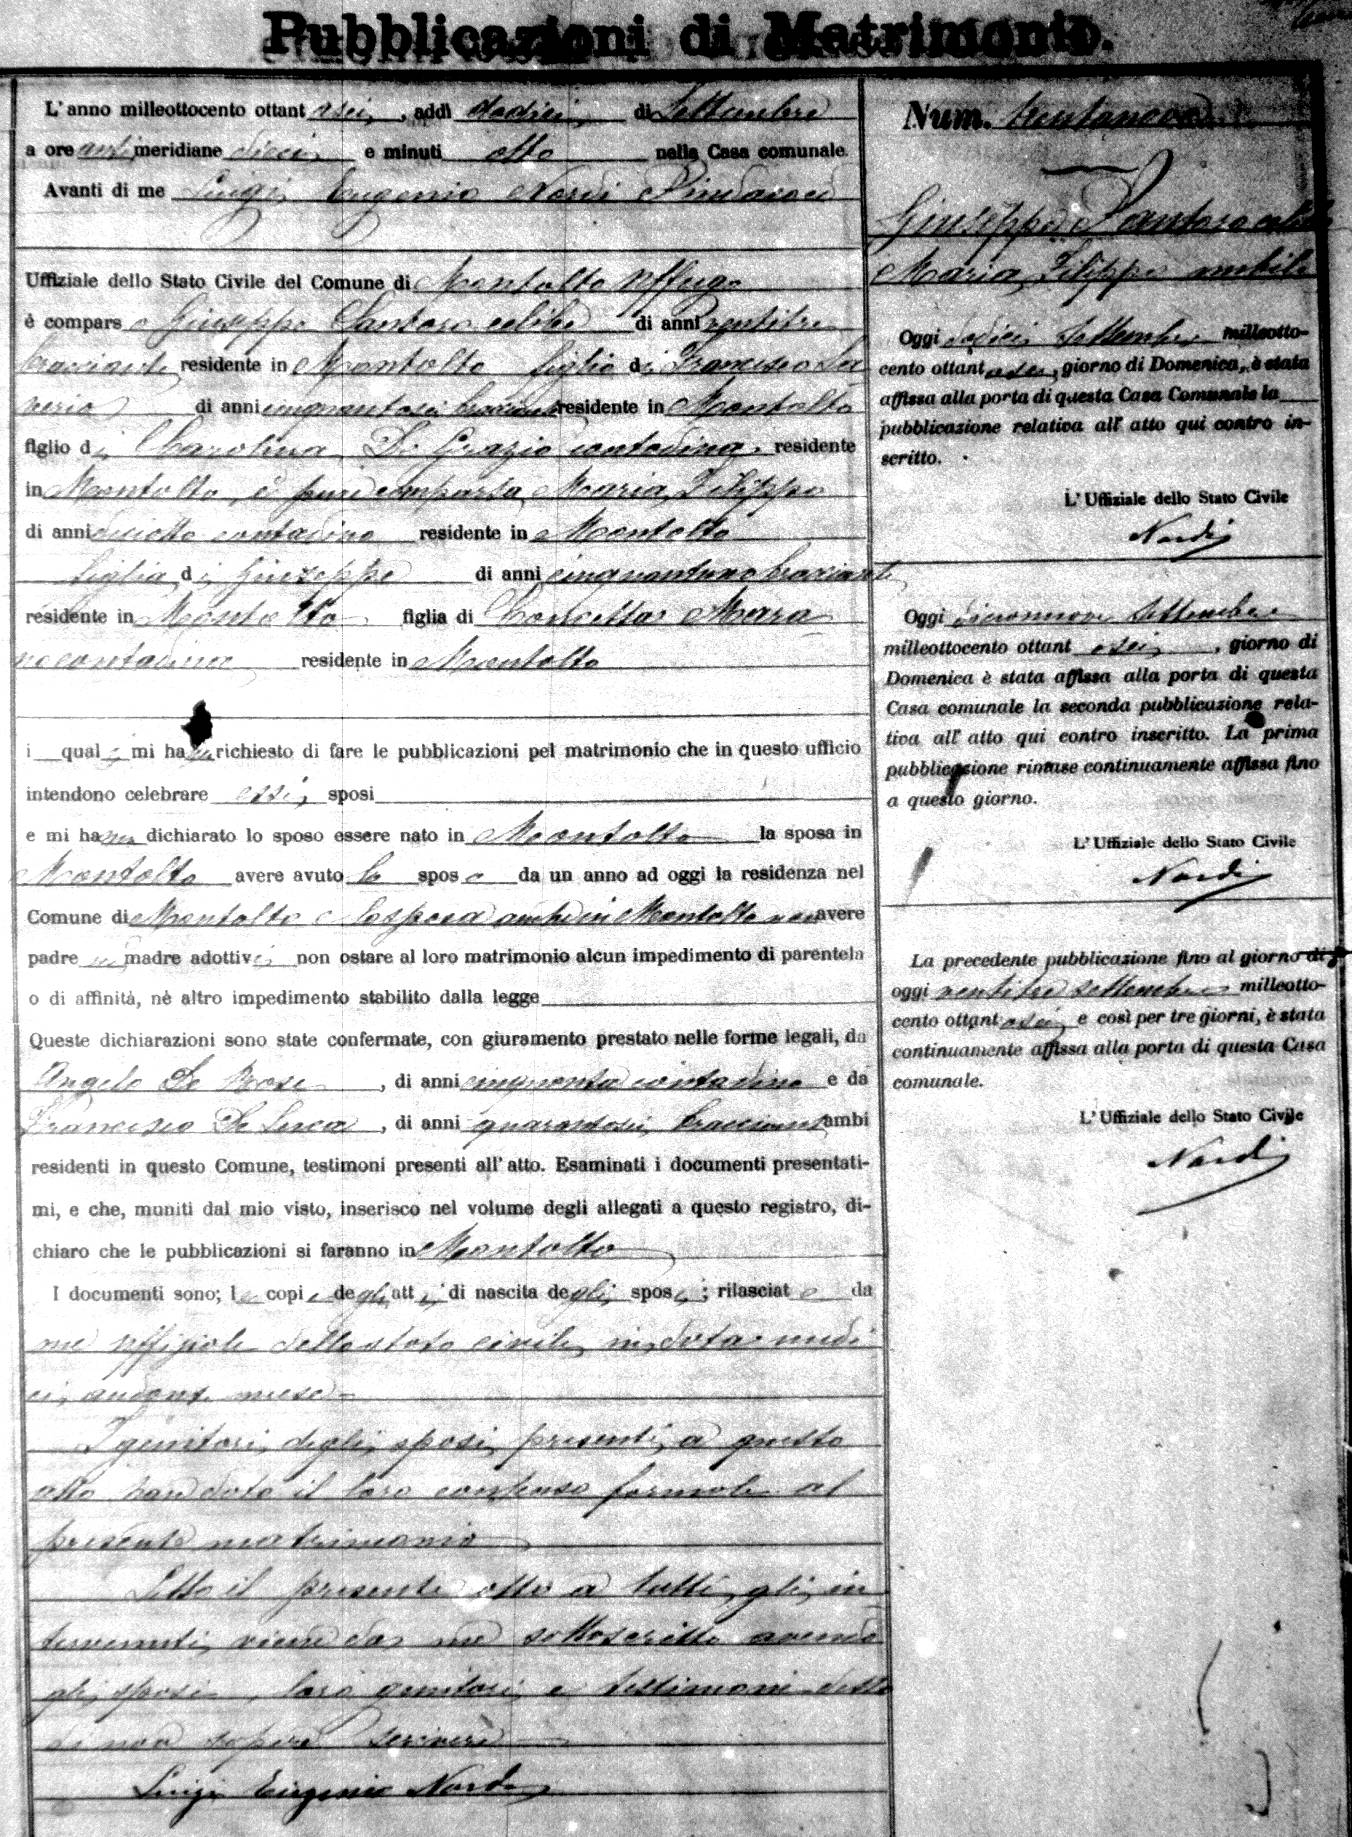 Pubblicazioni di Matrimonio.
L'anno milleottocento ottantasei, addì dodici di Settembre
a ore antimeridiane dieci e minuti otto nella Casa comunale.
Avanti di me Luigi Eugenio Nardi Sindaco ed
Uffiziale dello Stato Civile del Comune di Montalto Uffugo
è comparso Giuseppe Santoro celibe di anni ventitre
bracciante residente in Montalto figlio di Francesco Sa
verio di anni cinquantasei bracciante residente in Montalto
figlio di Carolina De Grazio contadina, residente
in Montalto, è pure comparsa Maria Filippo
di anni diciotto contadina residente in Montalto
figlia di Giuseppe di anni cinquantuno bracciante
residente in Montalto figlia di Concetta Mara
no contadina residente in Montalto
i quali mi hanno richiesto di fare le pubblicazioni pel matrimonio che in questo ufficio
intendono celebrare essi sposi
e mi hanno dichiarato lo sposo essere nato in Montalto la sposa in
Montalto avere avuto lo sposo da un anno ad oggi la residenza nel
Comune di Montalto la sposa anche in Montalto non avere
padre nè madre adottivi non ostare al loro matrimonio alcun impedimento di parentela
o di affinità, nè altro impedimento stabilito dalla legge
Queste dichiarazioni sono state confermate, con giuramento prestato nelle forme legali, da
Angelo De Rose, di anni cinquanta contadino e da
Francesco De Luca, di anni quarantasei bracciante ambi
residenti in questo Comune, testimoni presenti all'atto. Esaminati i documenti presentati-
mi, e che, muniti dal mio visto, inserisco nel volume degli allegati a questo registro, di-
chiaro che le pubblicazioni si faranno in Montalto
I documenti sono; le copie degli atti di nascita degli sposi; rilasciate da
me Uffiziale dello stato civile in data undi
ci andante mese
I genitori degli sposi presenti a questo
atto han dato il loro consenso formale al
presente matrimonio
Letto il presente atto a tutti gli in
tervenuti viene da me sottoscritto avendo
gli sposi, loro genitori e testimoni detto
di non sapere scrivere
Luigi Eugenio Nardi
Num. trentanove
Giuseppe Santoro celibe
Maria Filippo nubile
Oggi dodici Settembre milleotto-
cento ottantasei, giorno di Domenica, è stata
affissa alla porta di questa Casa Comunale la
pubblicazione relativa all'atto qui contro in-
scritto.
L'Uffiziale dello Stato Civile
Nardi
Oggi diciannove Settembre
milleottocento ottantasei, giorno di
Domenica è stata affissa alla porta di questa
Casa comunale la seconda pubblicazione rela-
tiva all'atto qui contro inscritto. La prima
pubblicazione rimase continuamente affissa fino
a questo giorno.
L'Uffiziale dello Stato Civile
Nardi
La precedente pubblicazione fino al giorno di
oggi ventitre settembre milleotto-
cento ottantasei e così per tre giorni, è stata
continuamente affissa alla porta di questa Casa
comunale.
L'Uffiziale dello Stato Civile
Nardi